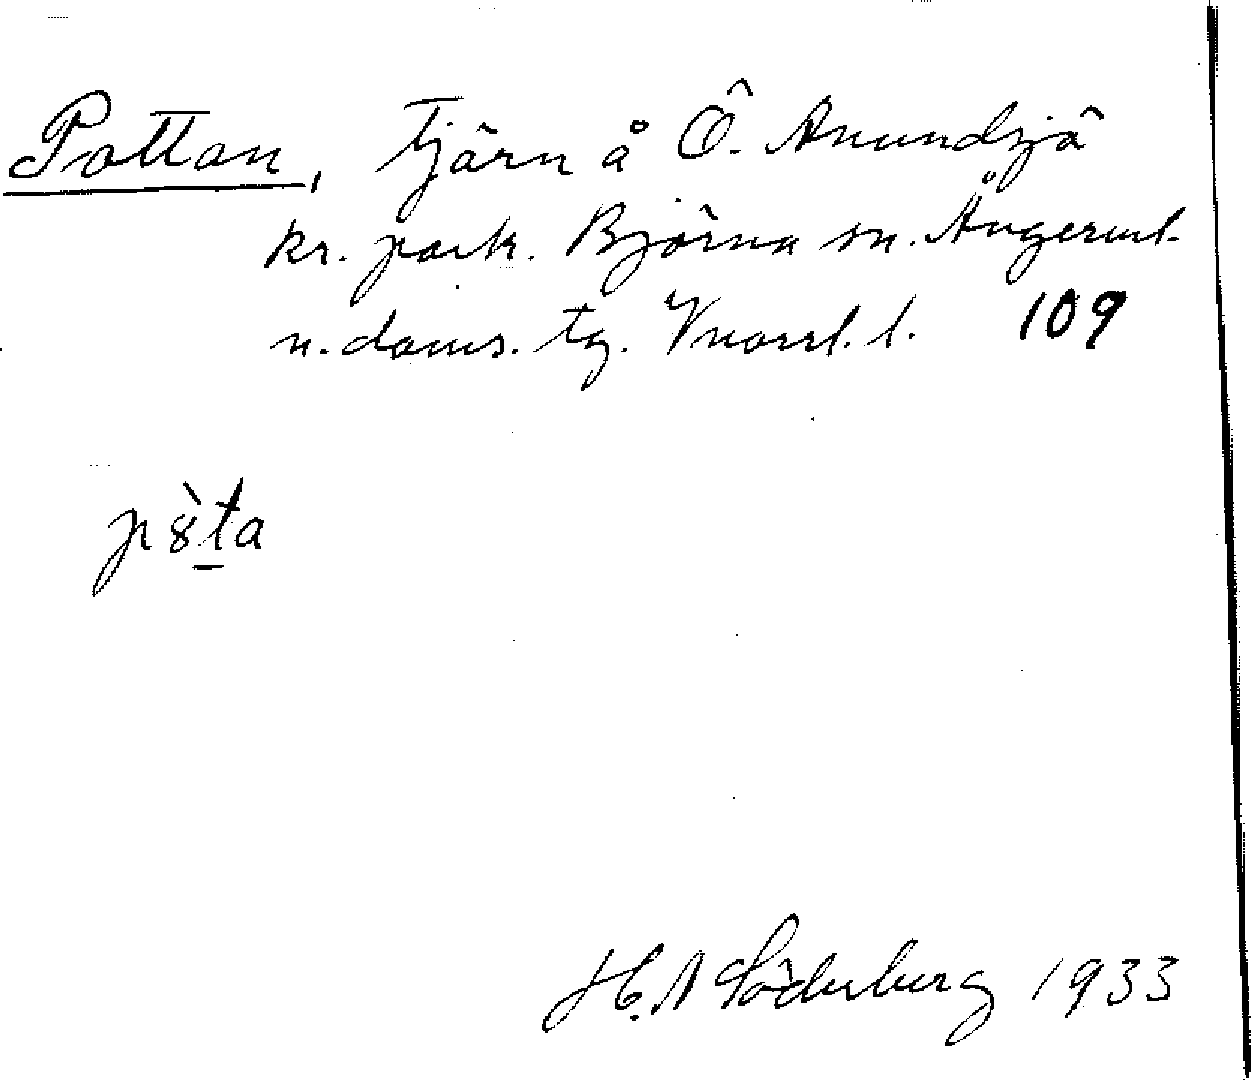 Pottan, Tjärn å Ö. Anundsjö
kr. park. Björna sn. Ångerml.
n. doms. tg. Vnorrl. l. 109
pȣ̀ta
H. A Söderberg 1933